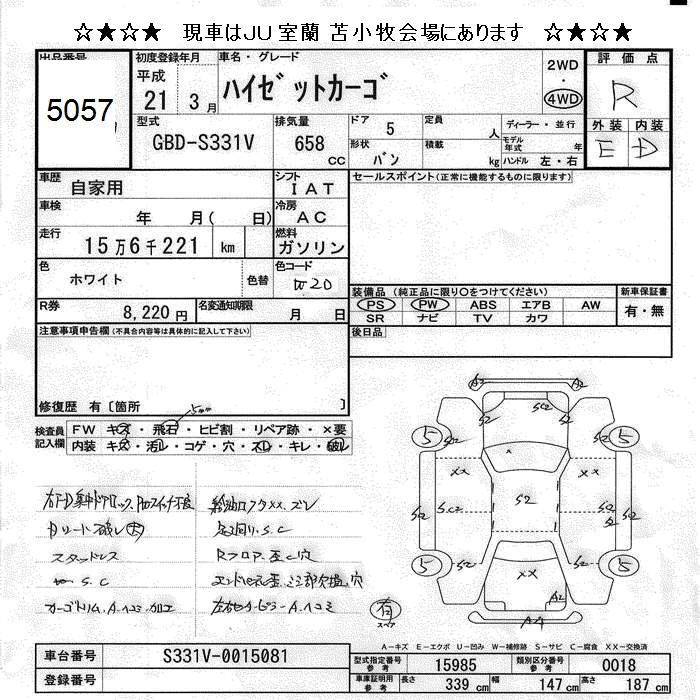 ☆★☆★ 現車はJU室蘭 苫小牧会場にあります ☆★☆★
出品番号
5057
初度登録年月
平成
21 3月
車名・グレード
ハイゼットカーゴ
2WD
・
4WD
評価点
R
外装 内装
E D
型式
GBD-S331V
排気量
658
CC
ドア
5
定員
人
形状
バン
積載
kg
ディーラー・並行
モデル年式
年
ハンドル 左・右
車歴
自家用
シフト
IAT
セールスポイント(正常に機能するものに限ります)
車検
年 月( 日)
冷房
AC
走行
15万6千221 km
燃料
ガソリン
色
ホワイト
色替
色コード
W20
装備品 (純正品に限り○をつけてください)
PS PW ABS エアB AW
SR ナビ TV カワ
新車保証書
有・無
R券
8,220円
名変通知期限
月 日
後日品
注意事項申告欄(不具合内容等は具体的に記入して下さい)
修復歴 有〔箇所 〕
5mm
検査員
記入欄
FW キズ・飛石・ヒビ割・リペア跡・×要
内装 キズ・汚レ・コゲ・穴・スレ・キレ・破レ
スタッドレス
S.C
カーゴトリム.A.ヘコミ.加工
給油口フタXX.ズレ
足廻り.S.C
Rフロア.歪 穴
A2 A2
S2 SC2 S2
5 S2 S2 5
XX XX
S2 SC2 S2 S2 S2
5 S2 XX S2 5
AA
有
スペア
A-キズ E-エクボ U-凹み W-補修跡 S-サビ C-腐食 XX-交換済
車台番号
S331V-0015081
登録番号
型式指定番号
参考
15985
類別区分番号
参考
0018
車庫証明用
参考
長さ
339 cm
幅
147 cm
高さ
187 cm